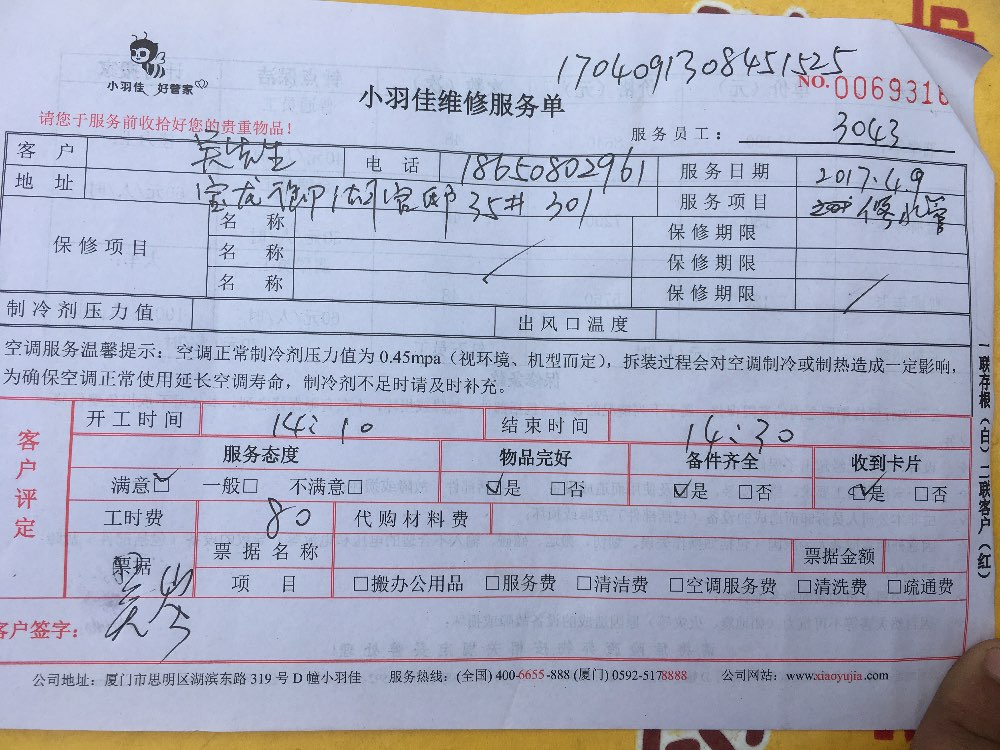 1704091308451525
小羽佳 好管家
小羽佳维修服务单
NO.0069316
请您于服务前收拾好您的贵重物品！
服务员工： 3043
客 户 吴先生 电 话 18650802961 服务日期 2017.4.9
地 址 宝龙御湖官邸 35# 301 服务项目 修水管
保修项目 名 称 保修期限
名 称 保修期限
名 称 保修期限
制冷剂压力值 出风口温度
空调服务温馨提示：空调正常制冷剂压力值为0.45mpa（视环境、机型而定），拆装过程会对空调制冷或制热造成一定影响，
为确保空调正常使用延长空调寿命，制冷剂不足时请及时补充。
客户评定
开工时间 14:10 结束时间 14:30
服务态度 物品完好 备件齐全 收到卡片
满意☑ 一般□ 不满意□ ☑是 □否 ☑是 □否 ☑是 □否
工时费 80 代购材料费
票据 票据名称 票据金额
项 目 □搬办公用品 □服务费 □清洁费 □空调服务费 □清洗费 □疏通费
客户签字： 吴
公司地址：厦门市思明区湖滨东路319号D幢小羽佳 服务热线：(全国) 400-6655-888 (厦门) 0592-5178888 公司网站：www.xiaoyujia.com
一联存根（白）二联客户（红）